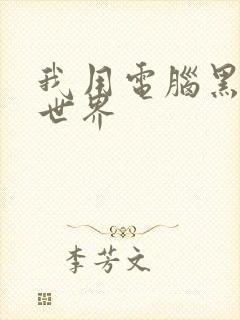 我用電腦黑
世界
李芳文